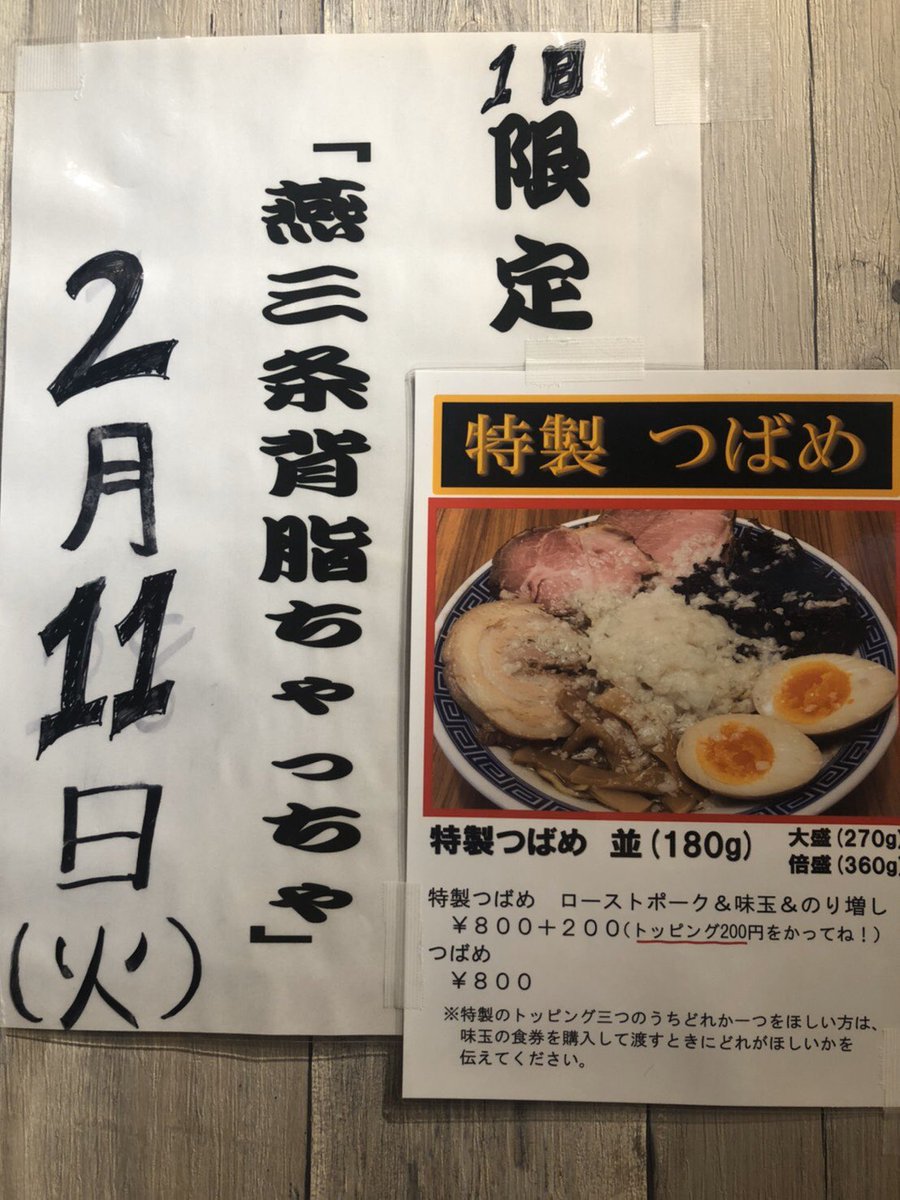 1日限定
「燕三条背脂ちゃっちゃ」
2月11日(火)
特製 つばめ
特製つばめ 並(180g) 大盛(270g)
倍盛(360g)
特製つばめ ローストポーク＆味玉＆のり増し
￥８００＋２００(トッピング200円をかってね！)
つばめ
￥８００
※特製のトッピング三つのうちどれか一つをほしい方は、
味玉の食券を購入して渡すときにどれがほしいかを
伝えてください。